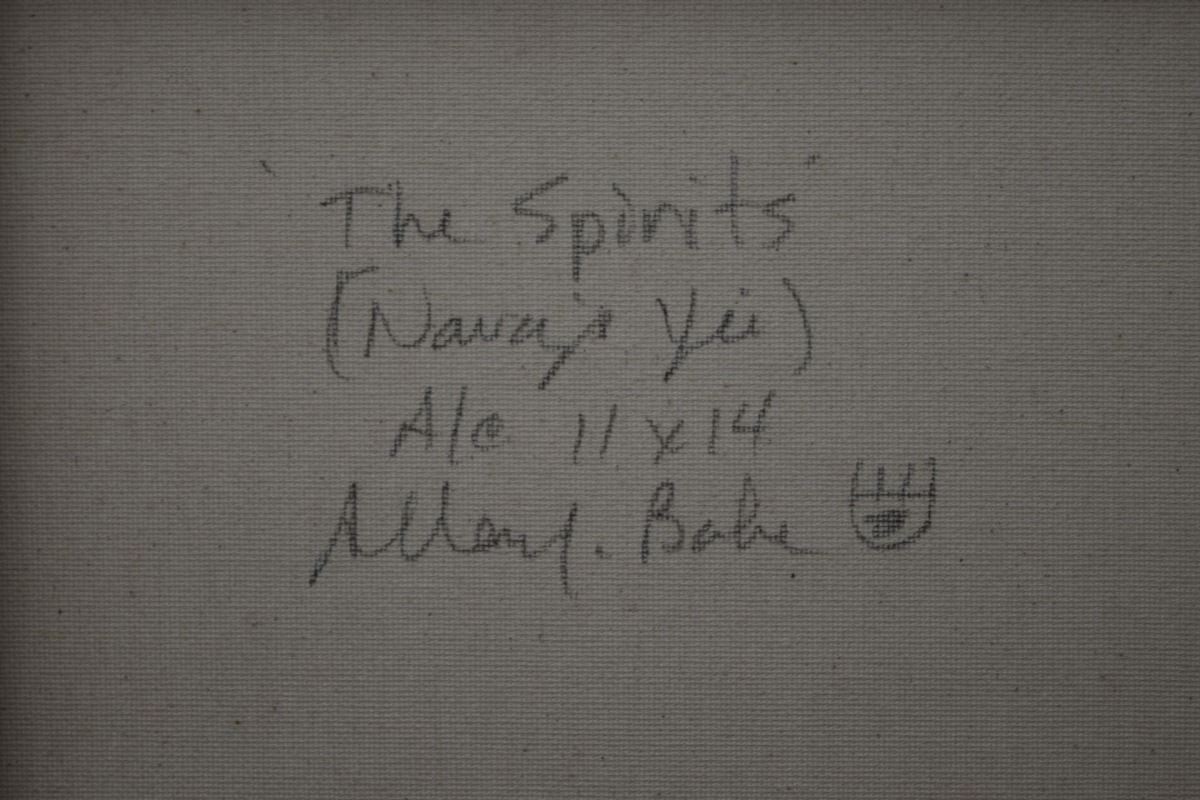 'The Spirits'
(Navajo Yei)
A/C 11 x 14
. Bahe